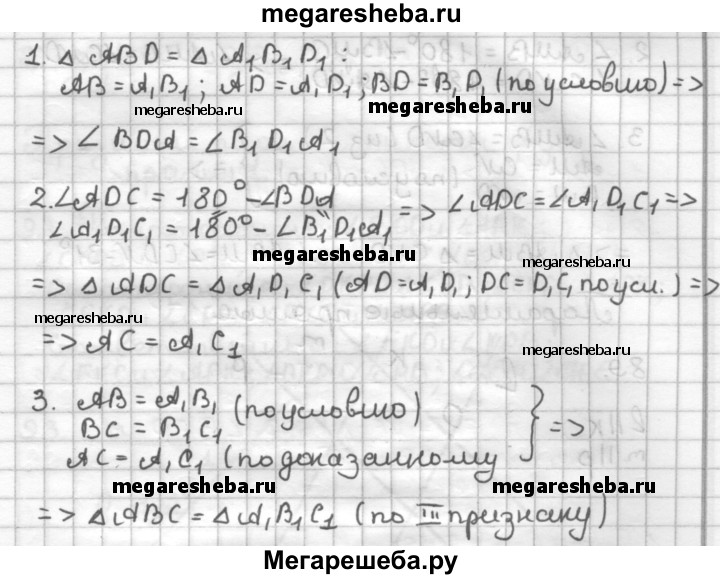 megaresheba.ru
1. △ ABD = △ A₁B₁D₁ :
AB = A₁B₁ ; AD = A₁D₁ ; BD = B₁D₁ (по условию) =>
megaresheba.ru megaresheba.ru
=> ∠ BDA = ∠ B₁D₁A₁
2. ∠ADC = 180° - ∠BDA
∠A₁D₁C₁ = 180° - ∠B₁D₁A₁ => ∠ADC = ∠A₁D₁C₁ =>
megaresheba.ru
megaresheba.ru
=> △ ADC = △ A₁D₁C₁ (AD = A₁D₁ ; DC = D₁C₁ по усл.) =>
megaresheba.ru
=> AC = A₁C₁
megaresheba.ru
3. AB = A₁B₁ (по условию)
BC = B₁C₁ } =>
AC = A₁C₁ (по доказанному
megaresheba.ru megaresheba.ru
=> △ABC = △A₁B₁C₁ (по III признаку)
Мегарешеба.ру